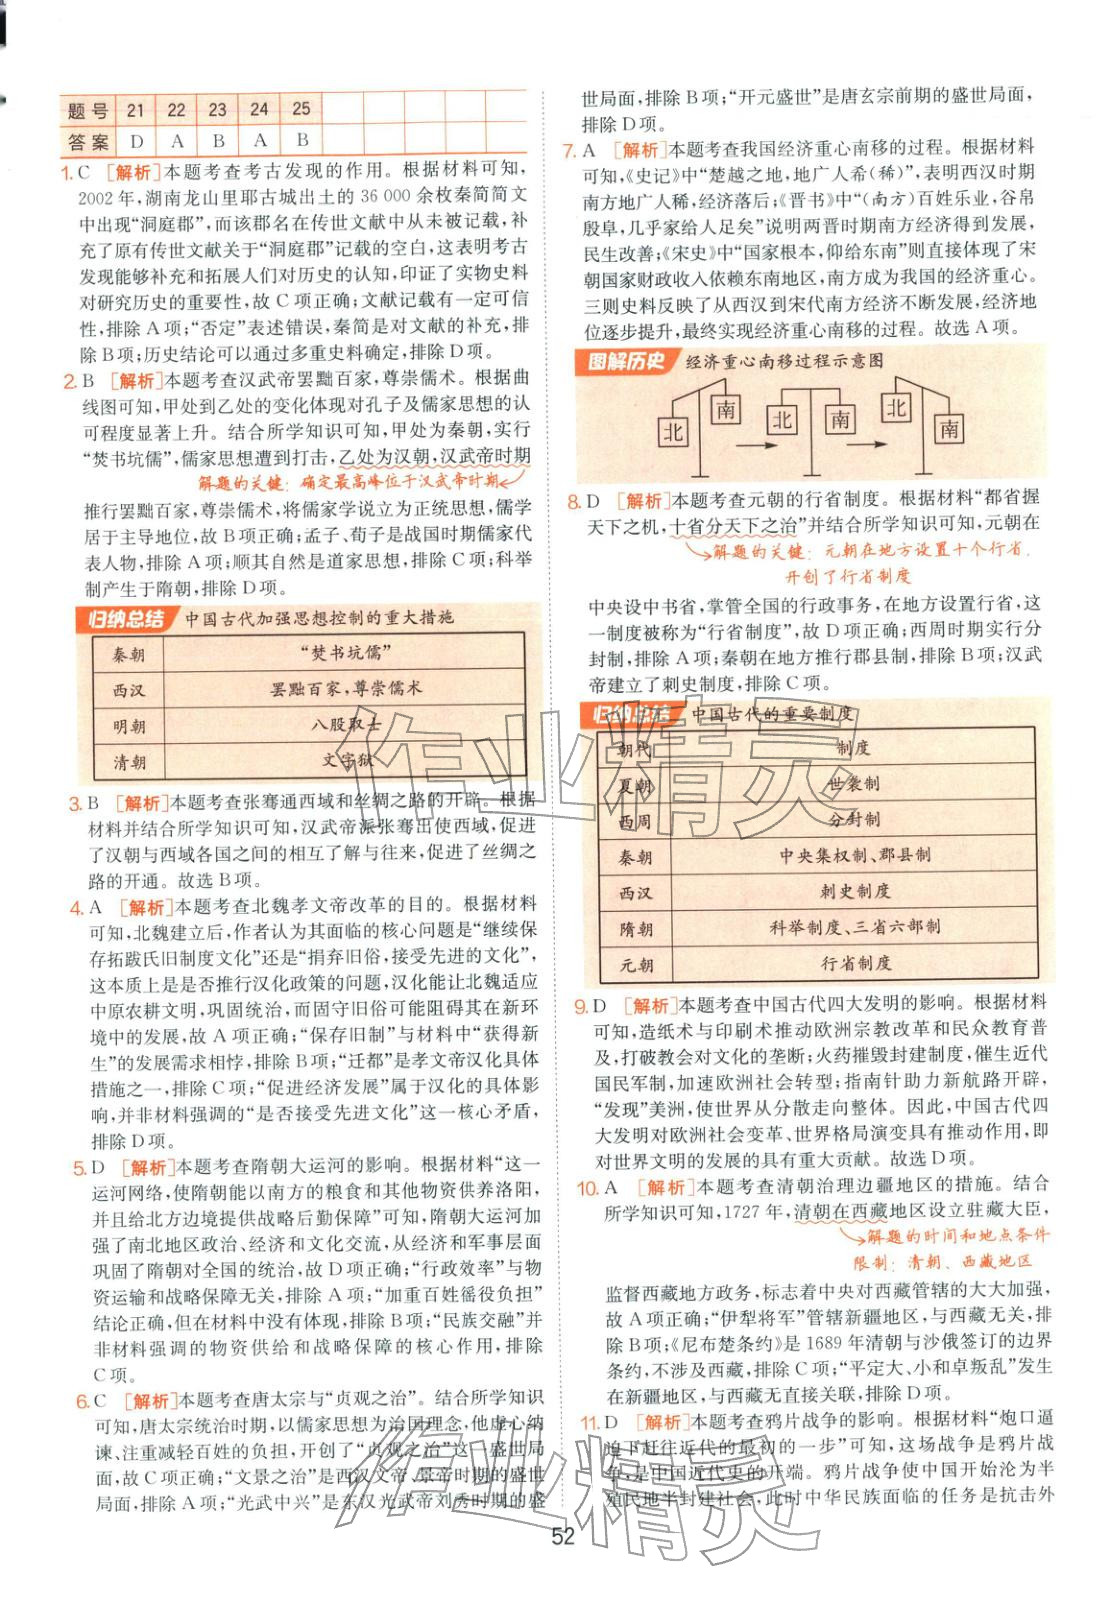 题号 21 22 23 24 25
答案 D A B A B
1. C [解析]本题考查考古发现的作用。根据材料可知,
2002年,湖南龙山里耶古城出土的36 000余枚秦简简文
中出现“洞庭郡”,而该郡名在传世文献中从未被记载,补
充了原有传世文献关于“洞庭郡”记载的空白,这表明考古
发现能够补充和拓展人们对历史的认知,印证了实物史料
对研究历史的重要性,故C项正确;文献记载有一定可信
性,排除A项;“否定”表述错误,秦简是对文献的补充,排
除B项;历史结论可以通过多重史料确定,排除D项。
2. B [解析]本题考查汉武帝罢黜百家,尊崇儒术。根据曲
线图可知,甲处到乙处的变化体现对孔子及儒家思想的认
可程度显著上升。结合所学知识可知,甲处为秦朝,实行
“焚书坑儒”,儒家思想遭到打击,乙处为汉朝,汉武帝时期
解题的关键:确定最高峰位于汉武帝时期
推行罢黜百家,尊崇儒术,将儒家学说立为正统思想,儒学
居于主导地位,故B项正确;孟子、荀子是战国时期儒家代
表人物,排除A项;顺其自然是道家思想,排除C项;科举
制产生于隋朝,排除D项。
归纳总结 中国古代加强思想控制的重大措施
秦朝 “焚书坑儒”
西汉 罢黜百家,尊崇儒术
明朝 八股取士
清朝 文字狱
3. B [解析]本题考查张骞通西域和丝绸之路的开辟。根据
材料并结合所学知识可知,汉武帝派张骞出使西域,促进
了汉朝与西域各国之间的相互了解与往来,促进了丝绸之
路的开通。故选B项。
4. A [解析]本题考查北魏孝文帝改革的目的。根据材料
可知,北魏建立后,作者认为其面临的核心问题是“继续保
存拓跋氏旧制度文化”还是“捐弃旧俗,接受先进的文化”,
这本质上是是否推行汉化政策的问题,汉化能让北魏适应
中原农耕文明,巩固统治,而固守旧俗可能阻碍其在新环
境中的发展,故A项正确;“保存旧制”与材料中“获得新
生”的发展需求相悖,排除B项;“迁都”是孝文帝汉化具体
措施之一,排除C项;“促进经济发展”属于汉化的具体影
响,并非材料强调的“是否接受先进文化”这一核心矛盾,
排除D项。
5. D [解析]本题考查隋朝大运河的影响。根据材料“这一
运河网络,使隋朝能以南方的粮食和其他物资供养洛阳,
并且给北方边境提供战略后勤保障”可知,隋朝大运河加
强了南北地区政治、经济和文化交流,从经济和军事层面
巩固了隋朝对全国的统治,故D项正确;“行政效率”与物
资运输和战略保障无关,排除A项;“加重百姓徭役负担”
结论正确,但在材料中没有体现,排除B项;“民族交融”并
非材料强调的物资供给和战略保障的核心作用,排除
C项。
6. C [解析]本题考查唐太宗与“贞观之治”。结合所学知识
可知,唐太宗统治时期,以儒家思想为治国理念,他虚心纳
谏、注重减轻百姓的负担,开创了“贞观之治”这一盛世局
面,故C项正确;“文景之治”是西汉文帝、景帝时期的盛世
局面,排除A项;“光武中兴”是东汉光武帝刘秀时期的盛
世局面,排除B项;“开元盛世”是唐玄宗前期的盛世局面,
排除D项。
7. A [解析]本题考查我国经济重心南移的过程。根据材料
可知,《史记》中“楚越之地,地广人希(稀)”,表明西汉时期
南方地广人稀,经济落后;《晋书》中“(南方)百姓乐业,谷帛
殷阜,几乎家给人足矣”说明两晋时期南方经济得到发展,
民生改善;《宋史》中“国家根本,仰给东南”则直接体现了宋
朝国家财政收入依赖东南地区,南方成为我国的经济重心。
三则史料反映了从西汉到宋代南方经济不断发展,经济地
位逐步提升,最终实现经济重心南移的过程。故选A项。
图解历史 经济重心南移过程示意图
北 南 北 南 北 南
8. D [解析]本题考查元朝的行省制度。根据材料“都省握
天下之机,十省分天下之治”并结合所学知识可知,元朝在
解题的关键:元朝在地方设置十个行省,
开创了行省制度
中央设中书省,掌管全国的行政事务,在地方设置行省,这
一制度被称为“行省制度”,故D项正确;西周时期实行分
封制,排除A项;秦朝在地方推行郡县制,排除B项;汉武
帝建立了刺史制度,排除C项。
归纳总结 中国古代的重要制度
朝代 制度
夏朝 世袭制
西周 分封制
秦朝 中央集权制、郡县制
西汉 刺史制度
隋朝 科举制度、三省六部制
元朝 行省制度
9. D [解析]本题考查中国古代四大发明的影响。根据材料
可知,造纸术与印刷术推动欧洲宗教改革和民众教育普
及,打破教会对文化的垄断;火药摧毁封建制度,催生近代
国民军制,加速欧洲社会转型;指南针助力新航路开辟,
“发现”美洲,使世界从分散走向整体。因此,中国古代四
大发明对欧洲社会变革、世界格局演变具有推动作用,即
对世界文明的发展的具有重大贡献。故选D项。
10. A [解析]本题考查清朝治理边疆地区的措施。结合
所学知识可知,1727年,清朝在西藏地区设立驻藏大臣,
解题的时间和地点条件
限制:清朝、西藏地区
监督西藏地方政务,标志着中央对西藏管辖的大大加强,
故A项正确;“伊犁将军”管辖新疆地区,与西藏无关,排
除B项;《尼布楚条约》是1689年清朝与沙俄签订的边界
条约,不涉及西藏,排除C项;“平定大、小和卓叛乱”发生
在新疆地区,与西藏无直接关联,排除D项。
11. D [解析]本题考查鸦片战争的影响。根据材料“炮口逼
迫下赶往近代的最初的一步”可知,这场战争是鸦片战
争,是中国近代史的开端。鸦片战争使中国开始沦为半
殖民地半封建社会,此时中华民族面临的任务是抗击外
52
作业精灵
作业精灵